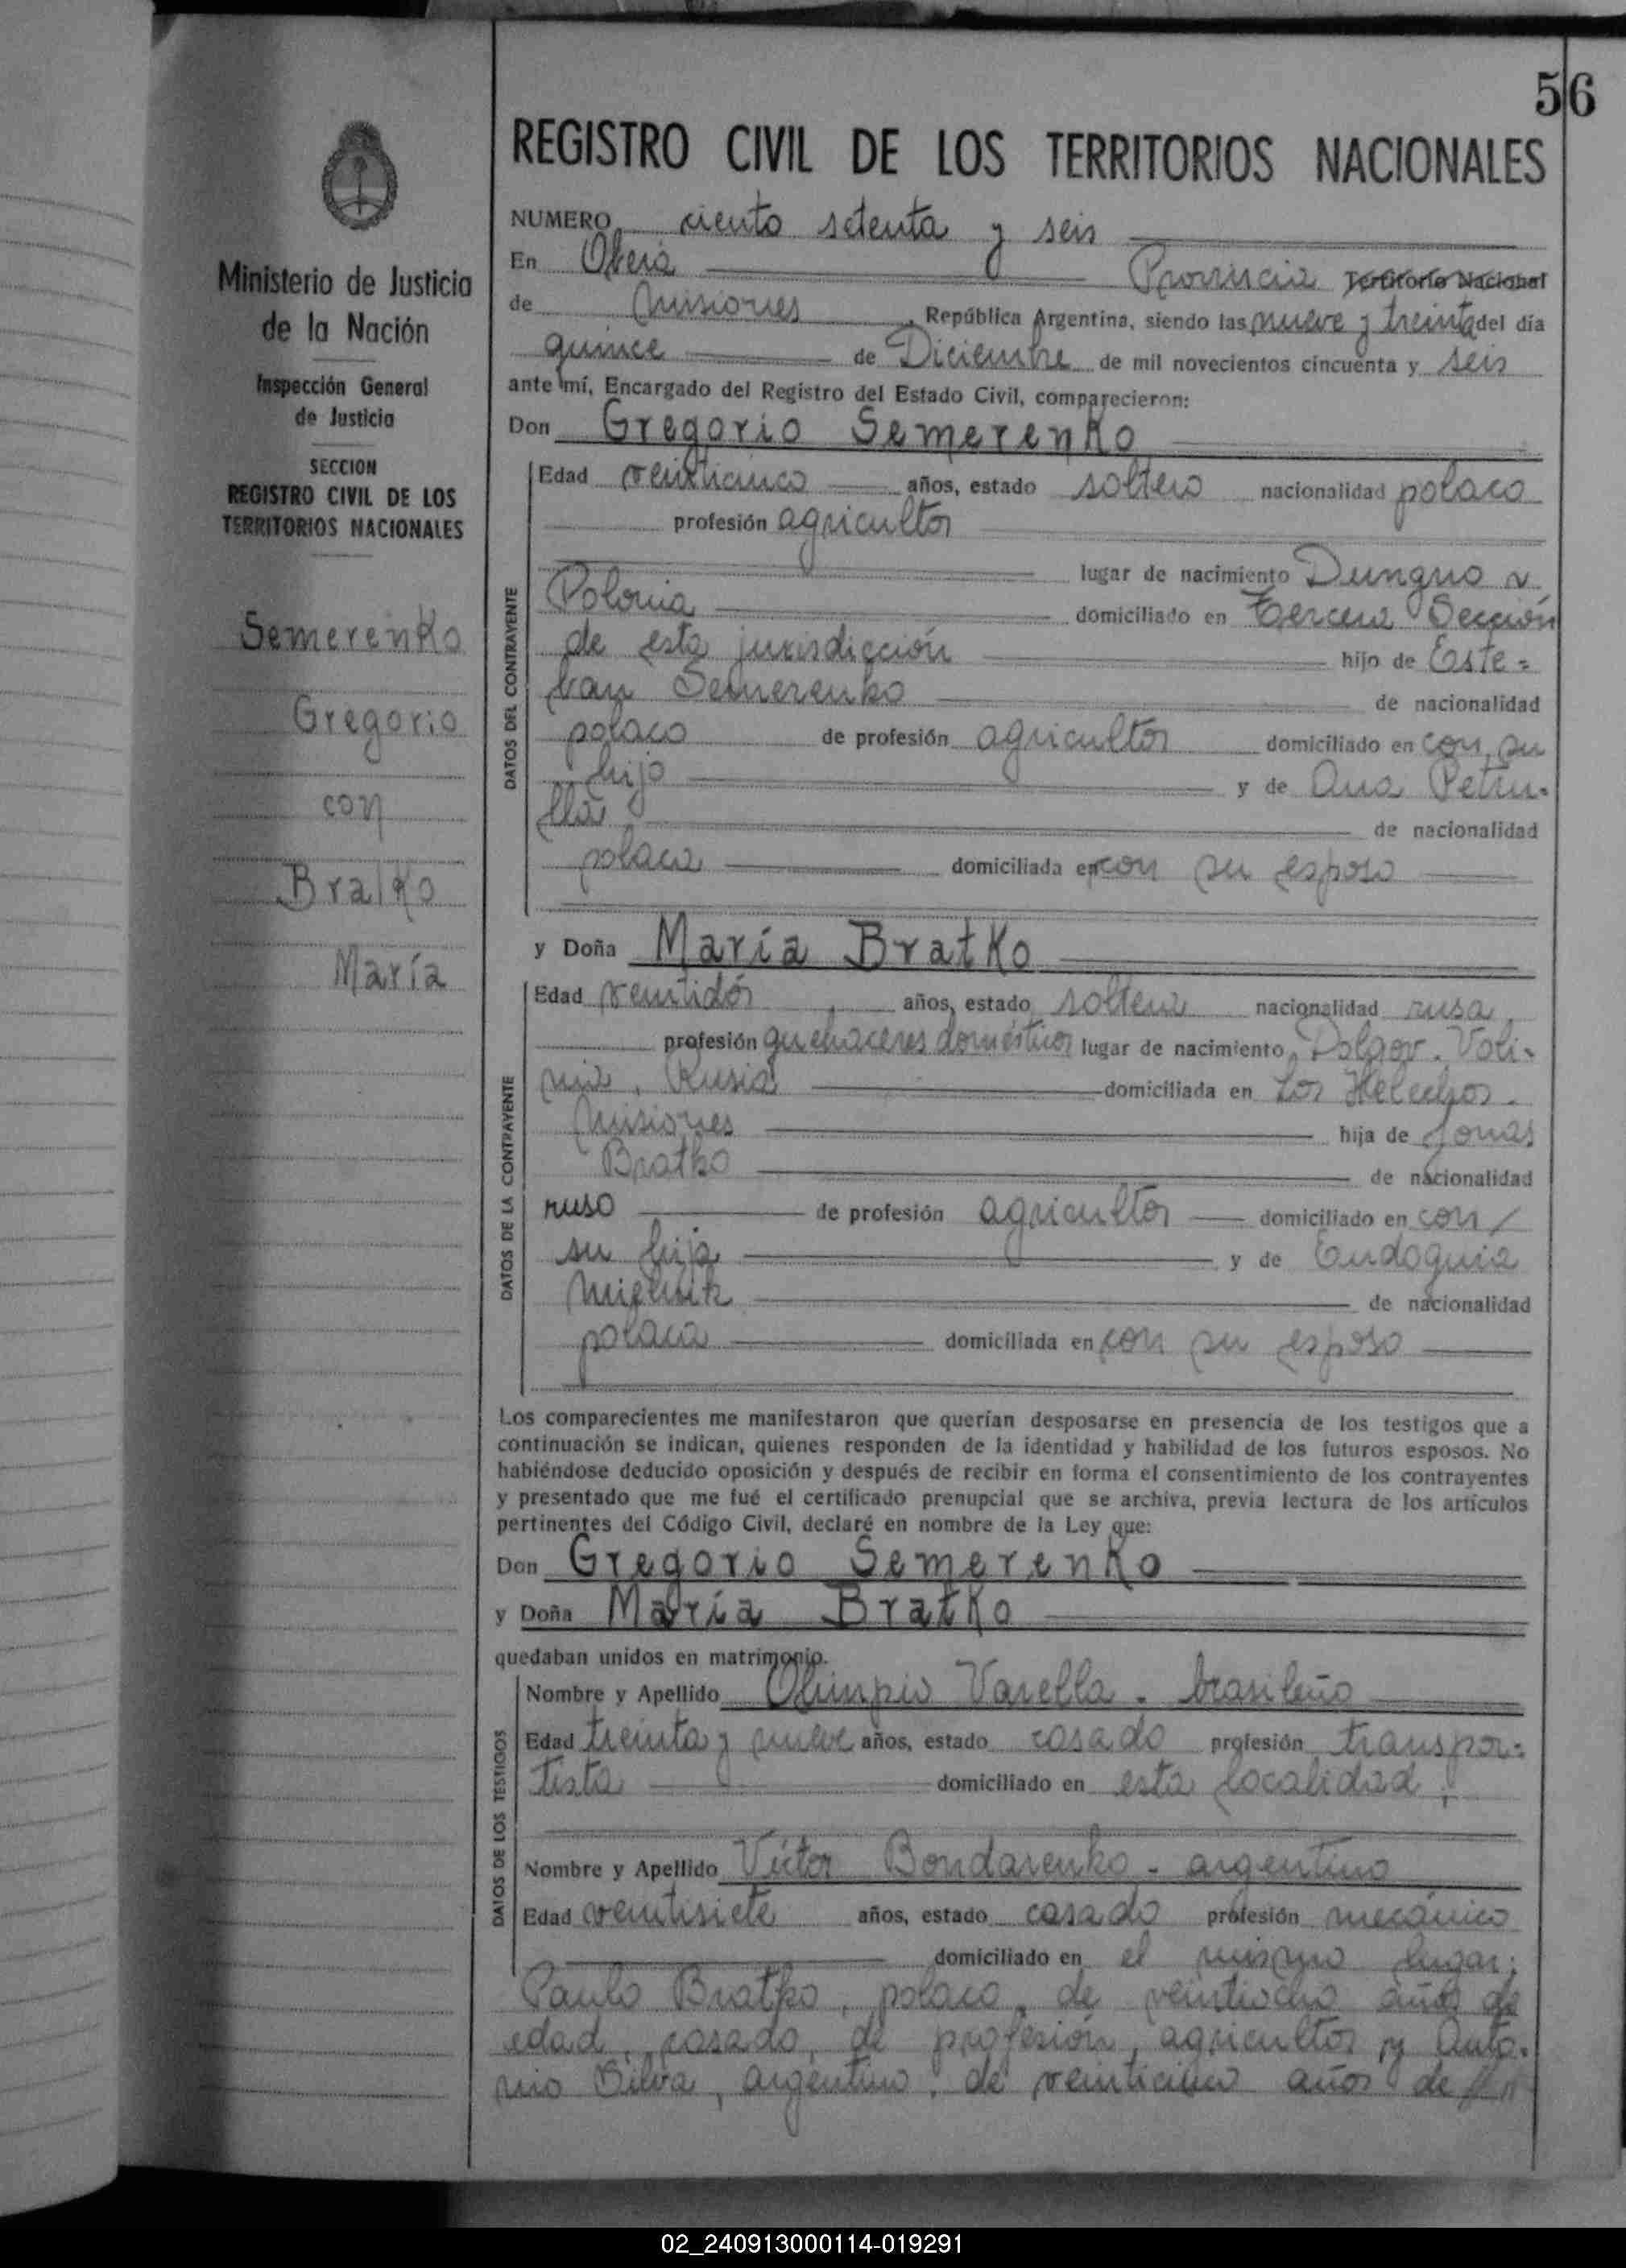 56
REGISTRO CIVIL DE LOS TERRITORIOS NACIONALES
Ministerio de Justicia
de la Nación
Inspección General
de Justicia
SECCION
REGISTRO CIVIL DE LOS
TERRITORIOS NACIONALES
Semerenko
Gregorio
con
Bratko
María
NUMERO ciento setenta y seis
En Oberá Provincia Territorio Nacional
de Misiones, República Argentina, siendo las nueve y treinta del día
quince de Diciembre de mil novecientos cincuenta y seis
ante mí, Encargado del Registro del Estado Civil, comparecieron:
Don Gregorio Semerenko
DATOS DEL CONTRAYENTE
Edad veinticinco años, estado soltero nacionalidad polaco
profesión agricultor
lugar de nacimiento
Polonia domiciliado en Tercera Sección
de esta jurisdicción hijo de Este=
ban Semerenko de nacionalidad
polaco de profesión agricultor domiciliado en con su
hijo y de Ana Petru-
lla de nacionalidad
polaca domiciliada en con su esposo
y Doña María Bratko
DATOS DE LA CONTRAYENTE
Edad veintidós años, estado soltera nacionalidad rusa
profesión quehaceres domésticos lugar de nacimiento Dolgov. Voli-
nia, Rusia domiciliada en Los Helechos.
Misiones hija de Jonas
Bratko de nacionalidad
ruso de profesión agricultor domiciliado en con
su hija y de Eudoquia
Mielnik de nacionalidad
polaca domiciliada en con su esposo
Los comparecientes me manifestaron que querían desposarse en presencia de los testigos que a
continuación se indican, quienes responden de la identidad y habilidad de los futuros esposos. No
habiéndose deducido oposición y después de recibir en forma el consentimiento de los contrayentes
y presentado que me fué el certificado prenupcial que se archiva, previa lectura de los artículos
pertinentes del Código Civil, declaré en nombre de la Ley que:
Don Gregorio Semerenko
y Doña María Bratko
quedaban unidos en matrimonio.
DATOS DE LOS TESTIGOS
Nombre y Apellido Olimpio Varella. brasileño
Edad treinta y nueve años, estado casado profesión transpor=
tista domiciliado en esta localidad;
Nombre y Apellido Víctor Bondarenko - argentino
Edad veintisiete años, estado casado profesión mecánico
domiciliado en el mismo lugar;
Paulo Bratko, polaco, de veintiocho años de
edad, casado, de profesión agricultor y Anto-
nio Silva, argentino, de veinticinco años de
02_240913000114-019291